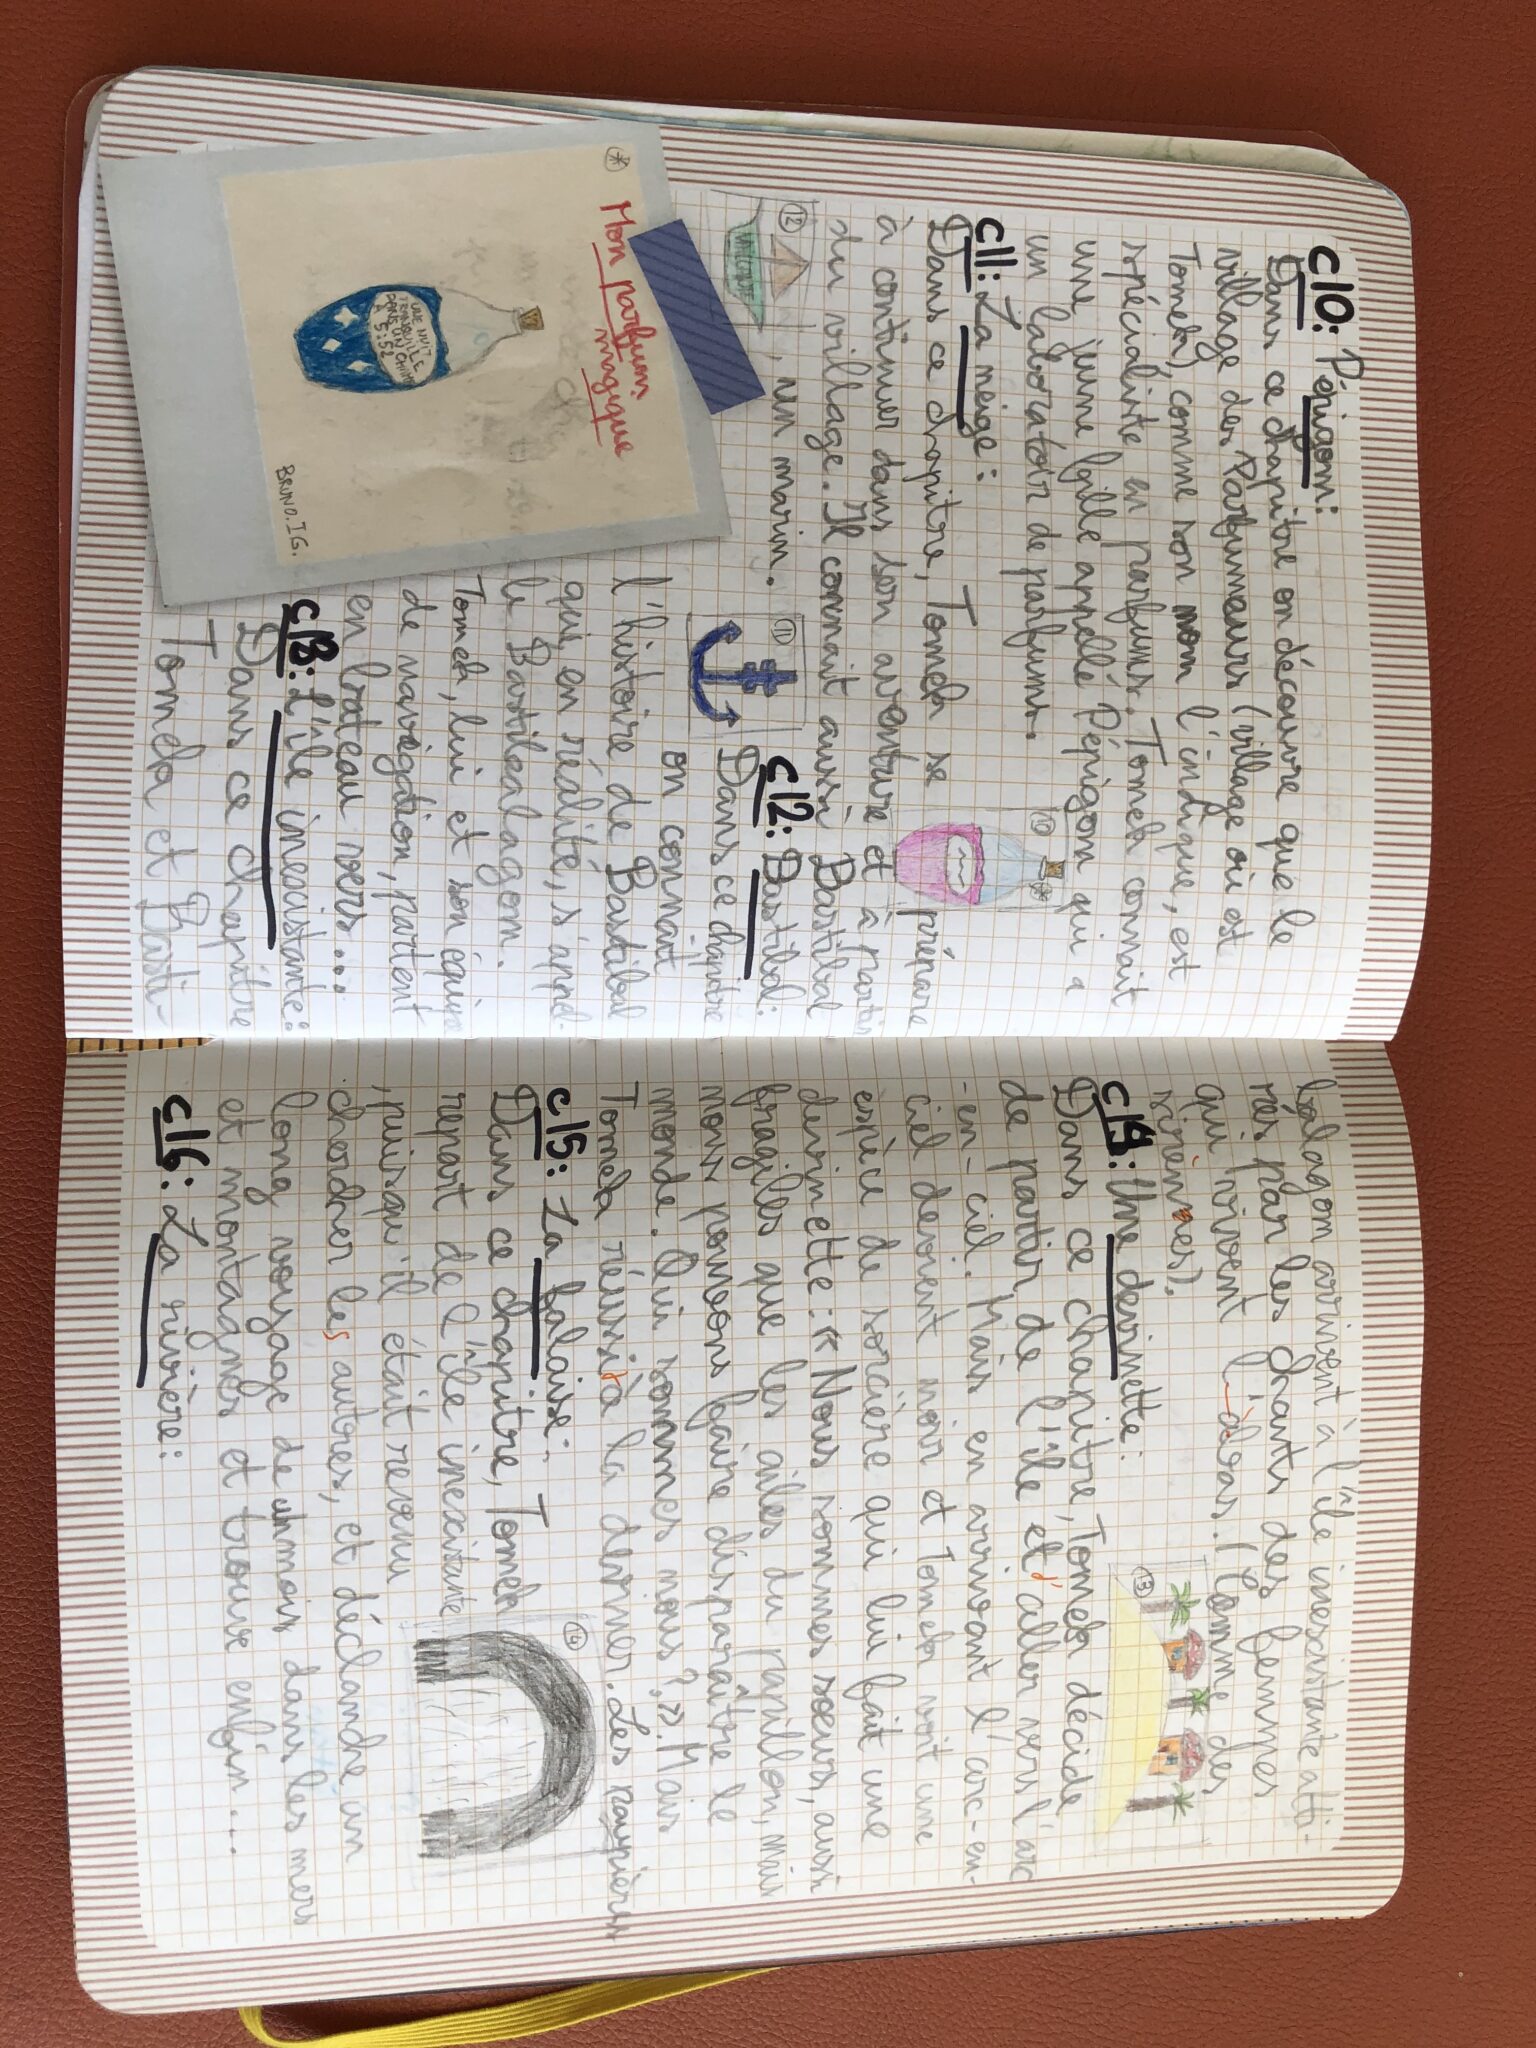 C10: Périgom:
Dans ce chapitre on découvre que le
village des Parfumeurs (village où est
Tomek), comme son nom l'indique, est
spécialiste en parfums. Tomek connait
une jeune fille appellé Pépigom qui a
un laboratoir de parfums.
10
C11: La neige:
Dans ce chapitre, Tomek se prépare
à continuer dans son aventure et à partir
du village. Il connait aussi Bastibal
12
, un marin.
11
C12: Bastibal:
Dans ce chapitre
on connait
l'histoire de Bastibal
qui en réalité, s'appel-
le Bastibalagom.
Tomek, lui et son équipe
de navégation, partent
en bateau vers...
C13: L'île inexistante:
Dans ce chapitre
Tomek et Basti-
*
Mon parfum
magique
UNE NUIT
TRANQUILLE
DANS UN CHAMP
À 5:52
BRUNO.IG.
balagom arrivent à l'île inexistante atti-
rés par les chants des femmes
qui vivent là-bas. (Comme des
sirènes).
13
C14: Une devinette:
Dans ce chapitre, Tomek décide
de partir de l'île et d'aller vers l'arc
-en-ciel. Mais en arrivant l'arc-en-
ciel devient noir et Tomek voit une
espèce de sorcière qui lui fait une
devinette: «Nous sommes soeurs, aussi
fragiles que les ailes du papillon, mais
nous pouvons faire disparaître le
monde. Qui sommes nous?». Mais
Tomek réussit à la deviner. Les paupières
14
C15: La falaise:
Dans ce chapitre, Tomek
repart de l'île inexitante
puisqu'il était revenu
chercher les autres, et déclandre un
long voyage de un mois dans les mers
et montagnes et trouve enfin...
C16: La rivière: